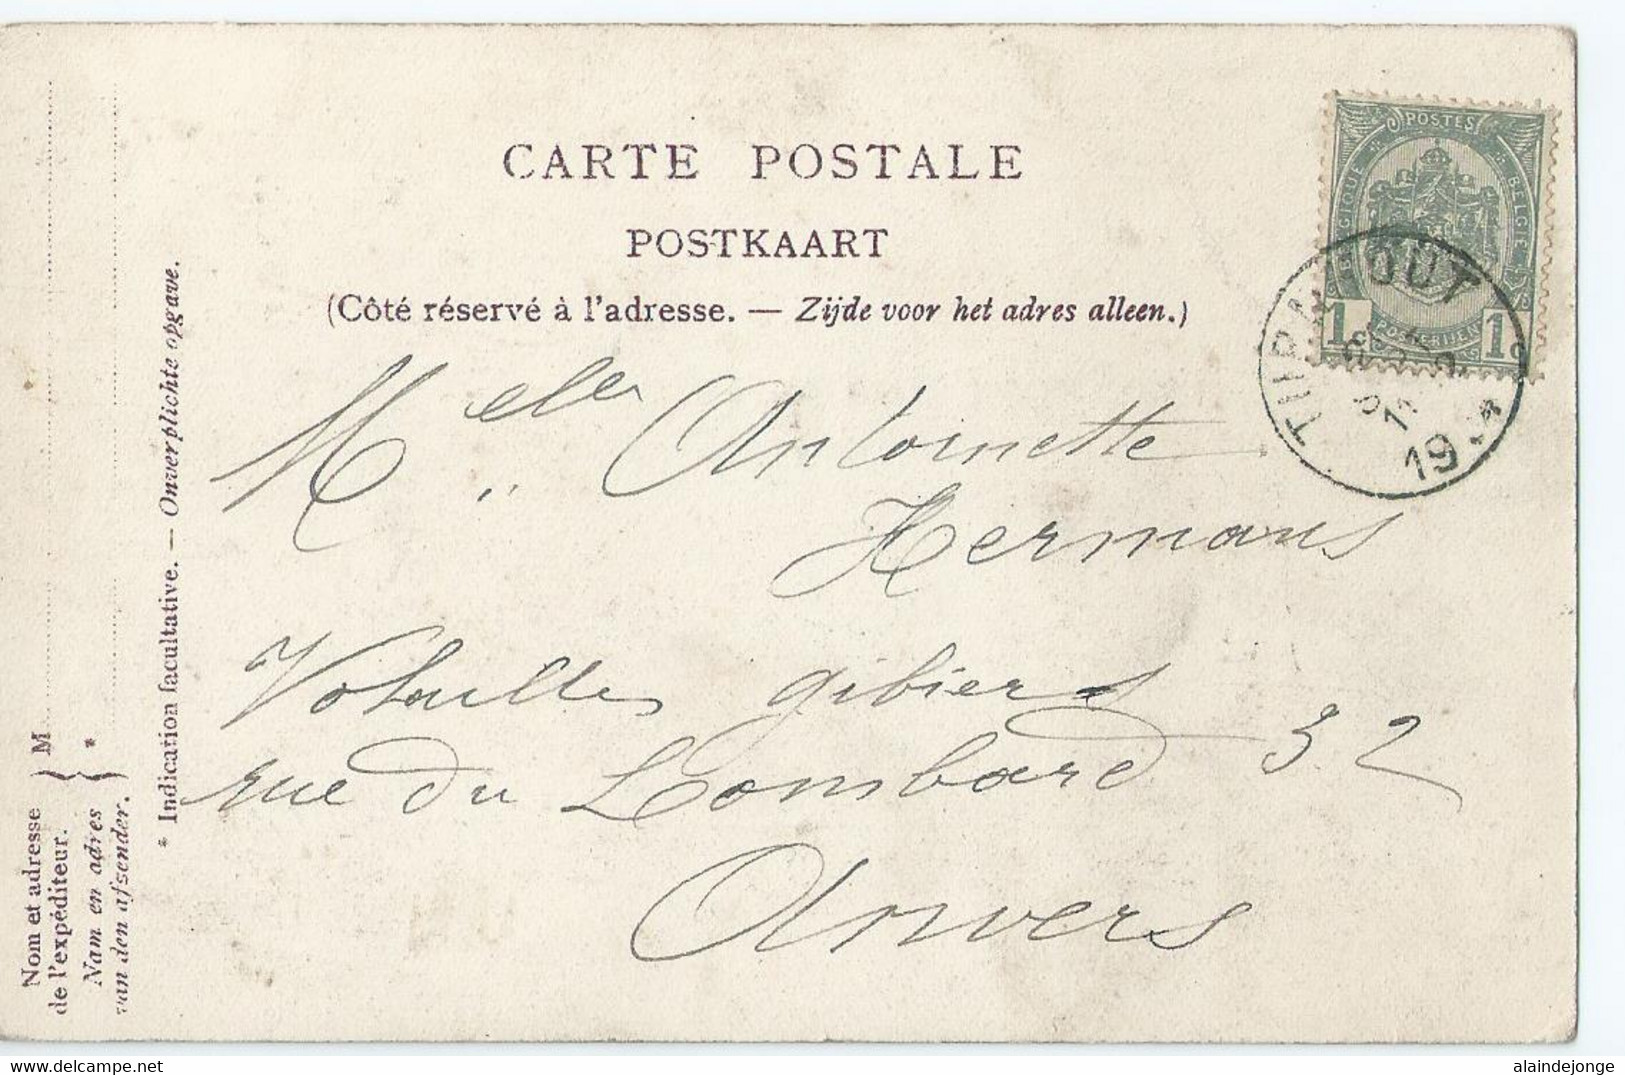 CARTE POSTALE
POSTKAART
(Côté réservé à l'adresse. — Zijde voor het adres alleen.)
POSTES
BELGIQUE
BELGIE
POSTERIJEN
1 1c
19
Melle Antoinette
Hermans
Volailles gibiers
rue du Lombard 32
Anvers
Nom et adresse
de l'expéditeur.
Nam en adres
van den afsender.
M
*
* Indication facultative. — Onverplichte opgave.
www.delcampe.net
alaindejonge